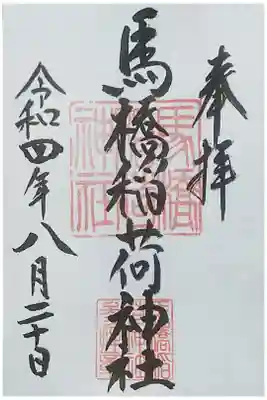 奉拝
馬橋稲荷神社
馬橋
神社
令和四年八月二十日